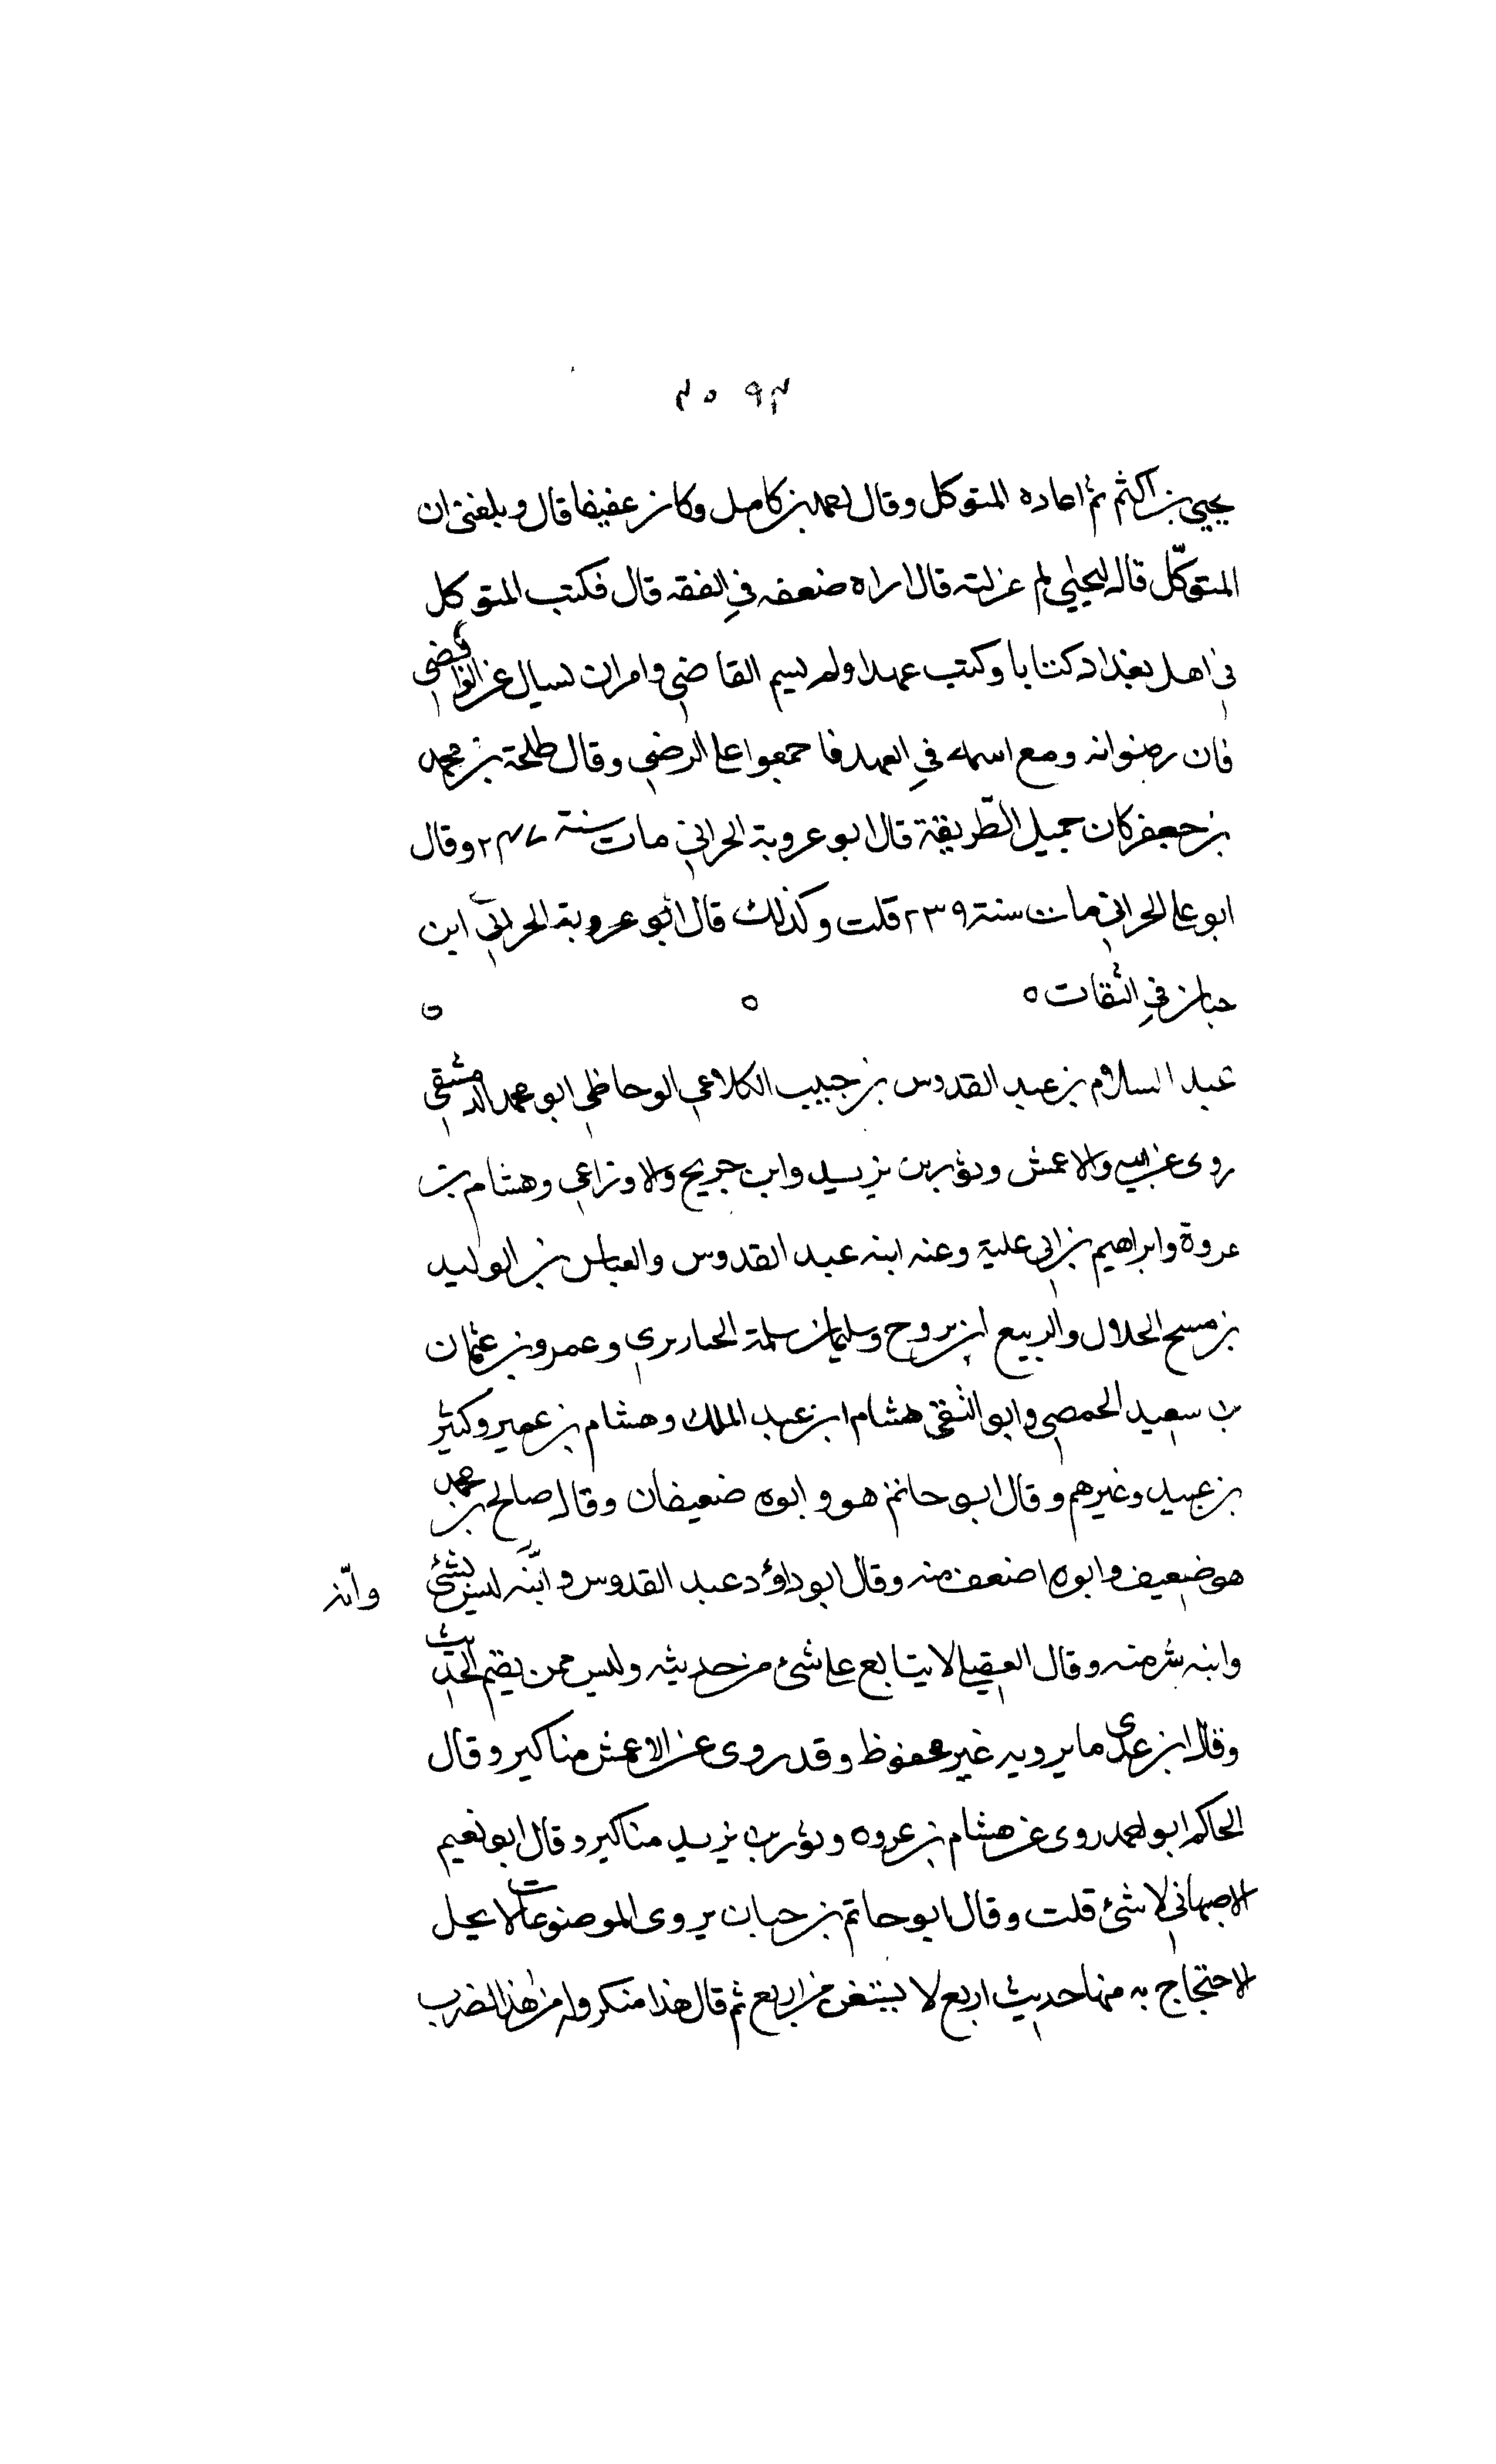 يحيى بن اكثم ثم اعاده المتوكل وقال احمد بن كامل وكان عفيفا قال وبلغنى ان
المتوكّل قال ليحيٰى لم عزلته قال اراه ضعفه في الفقه قال فكتب المتوكل
فى اهل بغداد كتابا وكتب عهدا ولم يسم القاضي وامر ان يسال عن القاضى
فان رضوا به وقع اسمه في العهد فاجمعوا على الرضى وقال طلحة بن محمد
بن جعفر كان جميل الطّريقة قال ابو عروبة الحراني مات سنة ٢٤٧ وقال
ابو على الحراني مات سنة ٢٣٩ قلت وكذلك قال ابو عروبة الحرانى ابن
حبان في الثقات ٥ ٥ ٥
عبد السلام بن عبد القدوس بن حبيب الكلاعي الوحاظي ابو محمد الدمشقي
روى عن ابيه والاعمش وثور بن يزيد وابن جريج والاوزاعي وهشام بن
عروة وابراهيم بن ابى علية وعنه ابنه عبد القدوس والعباس بن الوليد
بن مسبح الخلال والربيع ابن روح وسليمان بن سلمة الخبايري وعمرو بن عثمان
بن سعيد الحمصي وابو التقى هشام ابن عبد الملك وهشام بن عمير وكثير
بن عبيد وغيرهم وقال ابو حاتم هو وابوه ضعيفان وقال صالح بن محمد
هو ضعيف وابوه اضعف منه وقال ابو داؤد عبد القدوس وابنه ليس بشئ وابنه
وابنه شر منه وقال العقيلى لا يتابع على شئ من حديثه وليس ممن يقيم الحديث
وقال ابن عدى ما يرويه غير محفوظ وقد روى عن الاعمش مناكير وقال
الحاكم ابو احمد روى عن هشام بن عروه وثور بن يزيد مناكير وقال ابو نعيم
الاصبهاني لا شئ قلت وقال ابو حاتم بن حبان يروى الموضوعات لا يحل
الاحتجاج به منها حديث اربع لا يشبعن من اربع ثم قال هذا منكر وله من هذا الضرب